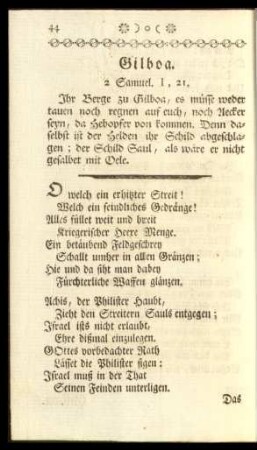 44
Gilboa.
2 Samuel. I, 21.
Ihr Berge zu Gilboa, es müsse weder
tauen noch regnen auf euch, noch Aecker
seyn, da Hebopfer von kommen. Denn da-
selbst ist der Helden ihr Schild abgeschla-
gen; der Schild Saul, als wäre er nicht
gesalbet mit Oele.
O welch ein erhitzter Streit!
Welch ein feindliches Gedränge!
Alles füllet weit und breit
Kriegerischer Heere Menge.
Ein betäubend Feldgeschrey
Schallt umher in allen Gränzen;
Hie und da siht man dabey
Fürchterliche Waffen glänzen.
Achis, der Philister Haubt,
Zieht den Streitern Sauls entgegen;
Israel ists nicht erlaubt,
Ehre dißmal einzulegen.
GOttes vorbedachter Rath
Lässet die Philister sigen:
Israel muß in der That
Seinen Feinden unterligen.
Das